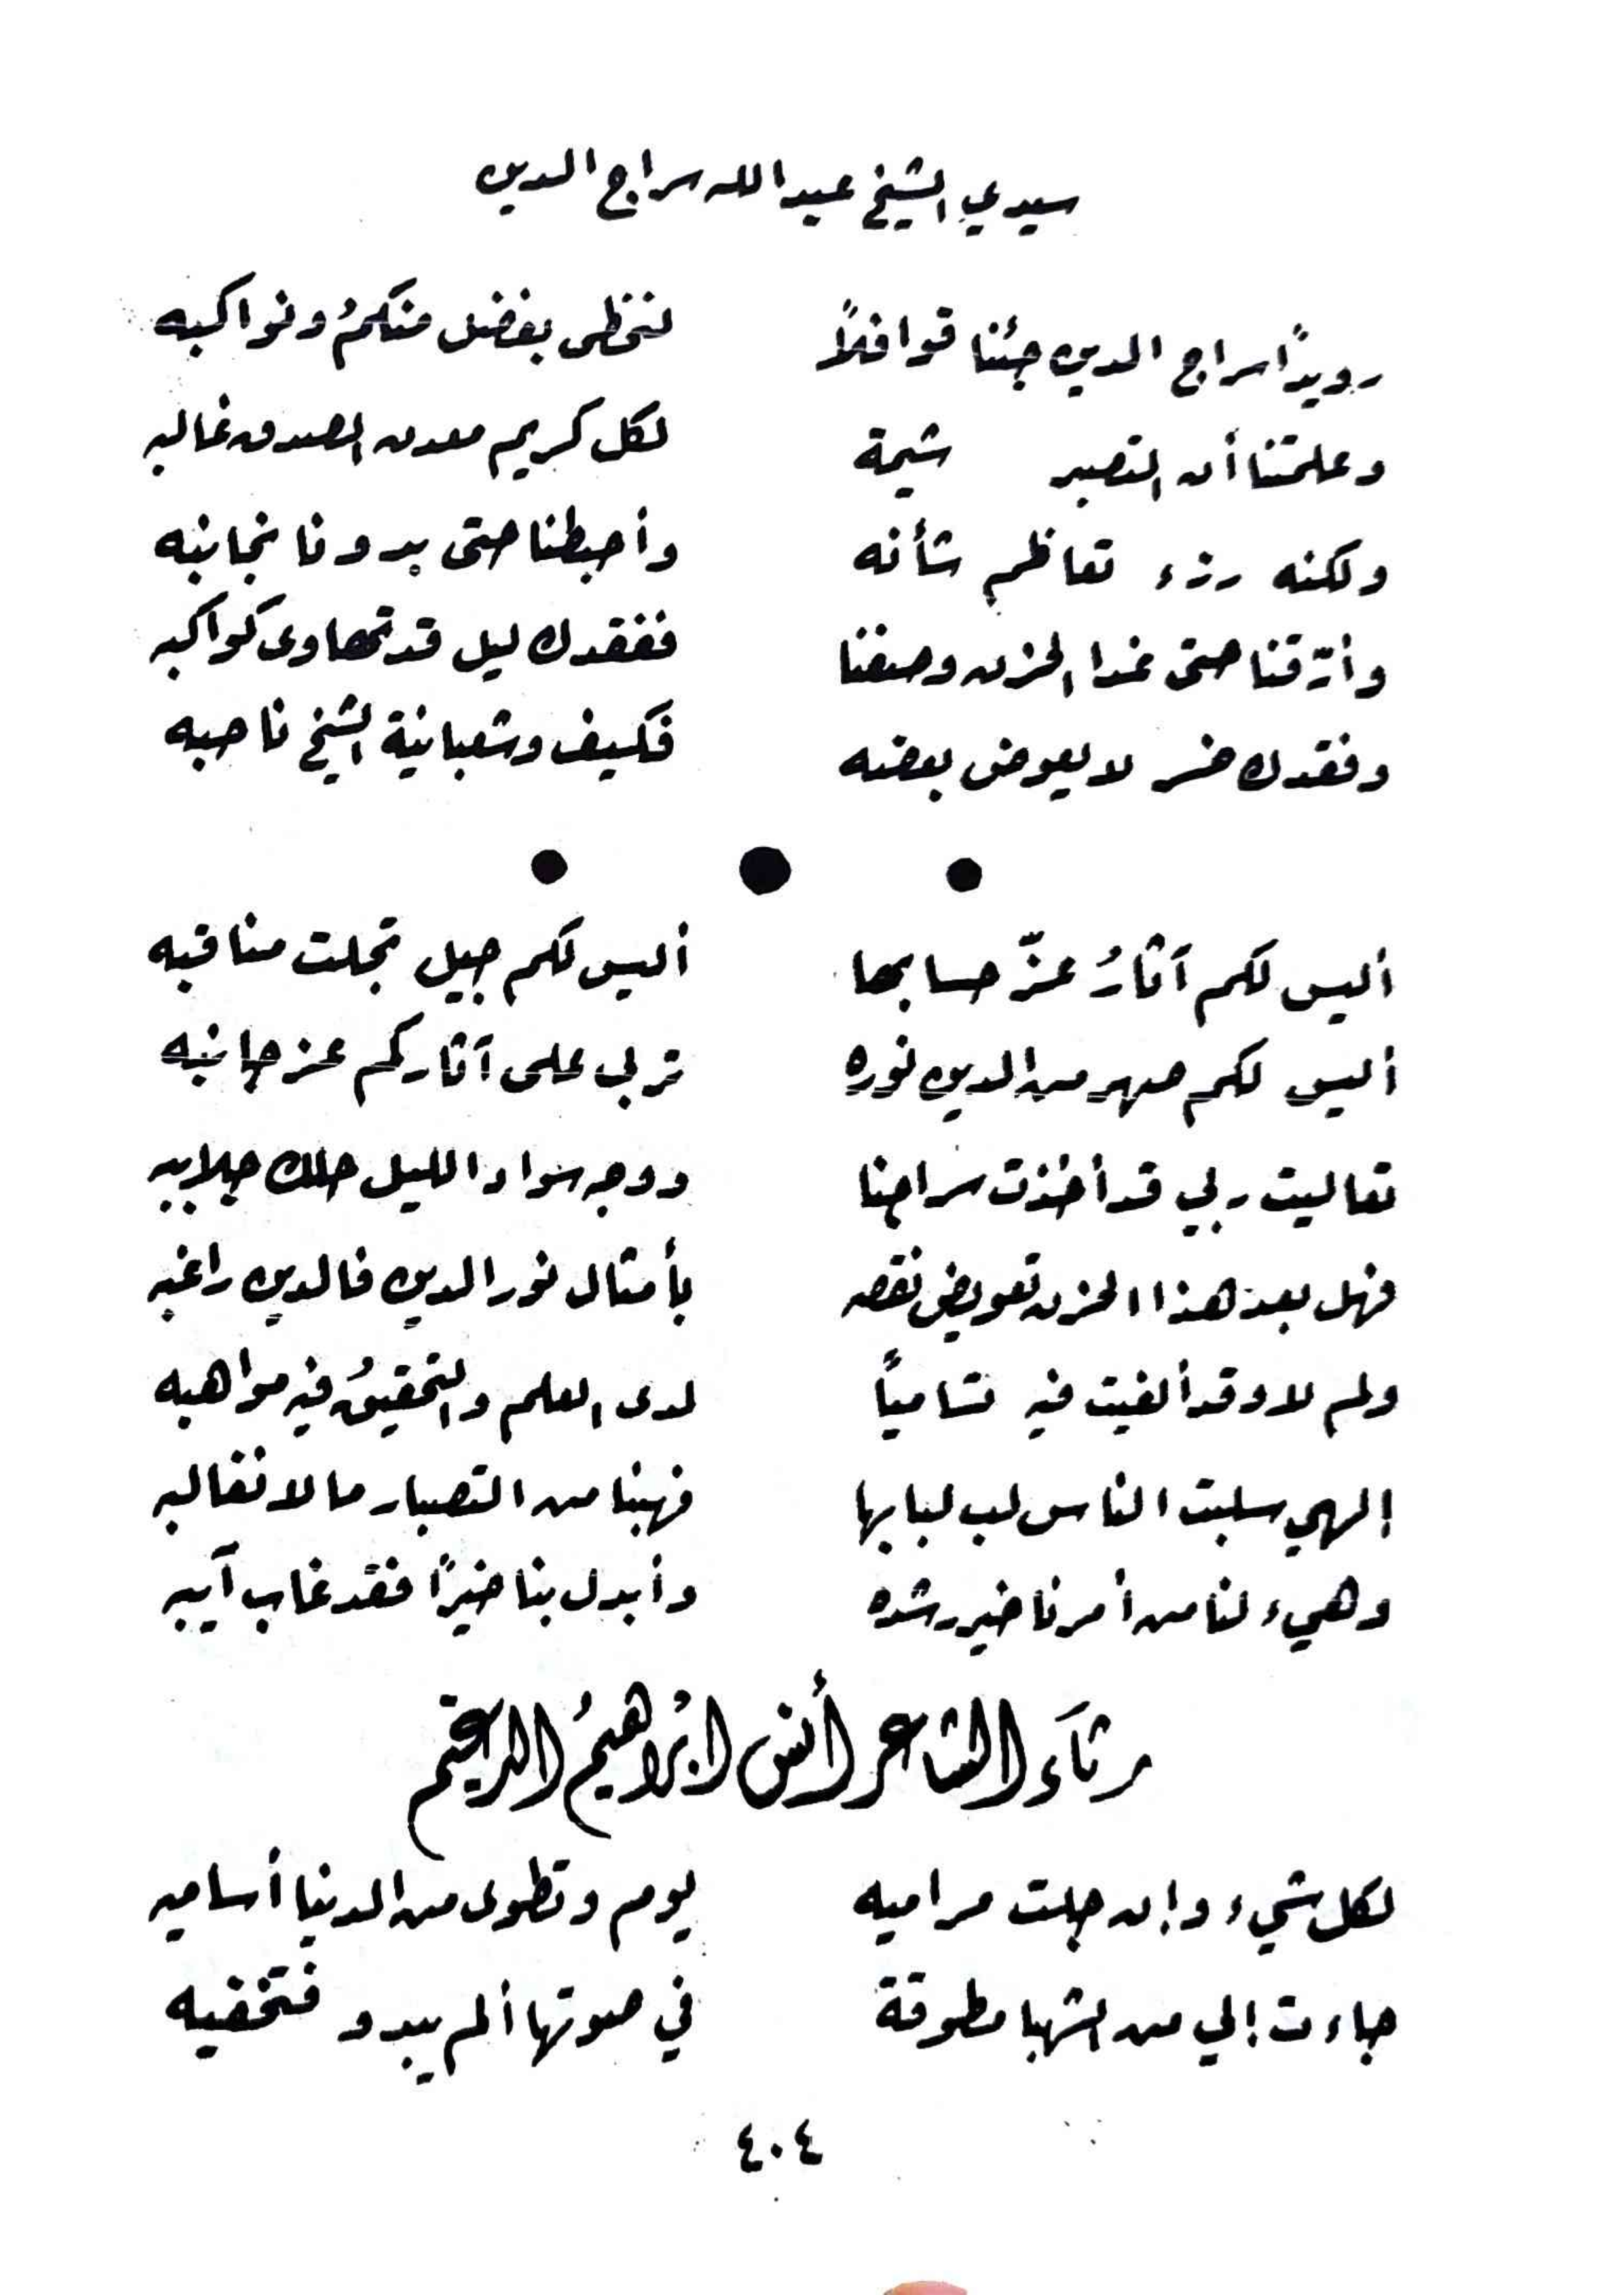 سيدي الشيخ عبد الله سراج الدين
رويداً سراج الدين جئنا قوافلاً لنحظى بفضل منكمُ ونواكبه
وعلمتنا أن التصبر شيمة لكل كريم معدن الصدق غالبه
ولكنه رزء تعاظم شأنه وأحبطنا حتى بدونا نجانبه
وأرّقنا حتى غدا الحزن وصفنا ففقدك ليل قد تهاوى كواكبه
وفقدك خسر لا يعوض بعضه فكيف وشعبانية الشيخ ناحبه
أليس لكم آثارُ عزّ حسابها أليس لكم جيل تجلت مناقبه
أليس لكم صهر من الدين نوره تربى على آثاركم عز جانبه
تعاليت ربي قد أخذت سراجنا ووجه سواد الليل حلك جلاببه
فهل بعد هذا الحزن تعويض نقصه بأمثال نور الدين فالدين راغبه
ولم لا وقد ألفيت فيه تسامياً لدى العلم والتحقيقُ فيه مواهبه
إلهي سلبت الناس لب لبابها فهبنا من التصبار ما لا نغالبه
وهيء لنا من أمرنا خير رشده وأبدل بنا خيراً فقد غاب آيبه
رثاء الشاعر أنس ابراهيم الدغيم
لكل شيء وإن جلت مراميه يوم وتطوى من الدنيا أساميه
جاءت إلي من الشهبا مطوقة في صوتها ألم يبدو فتخفيه
٤٠٤